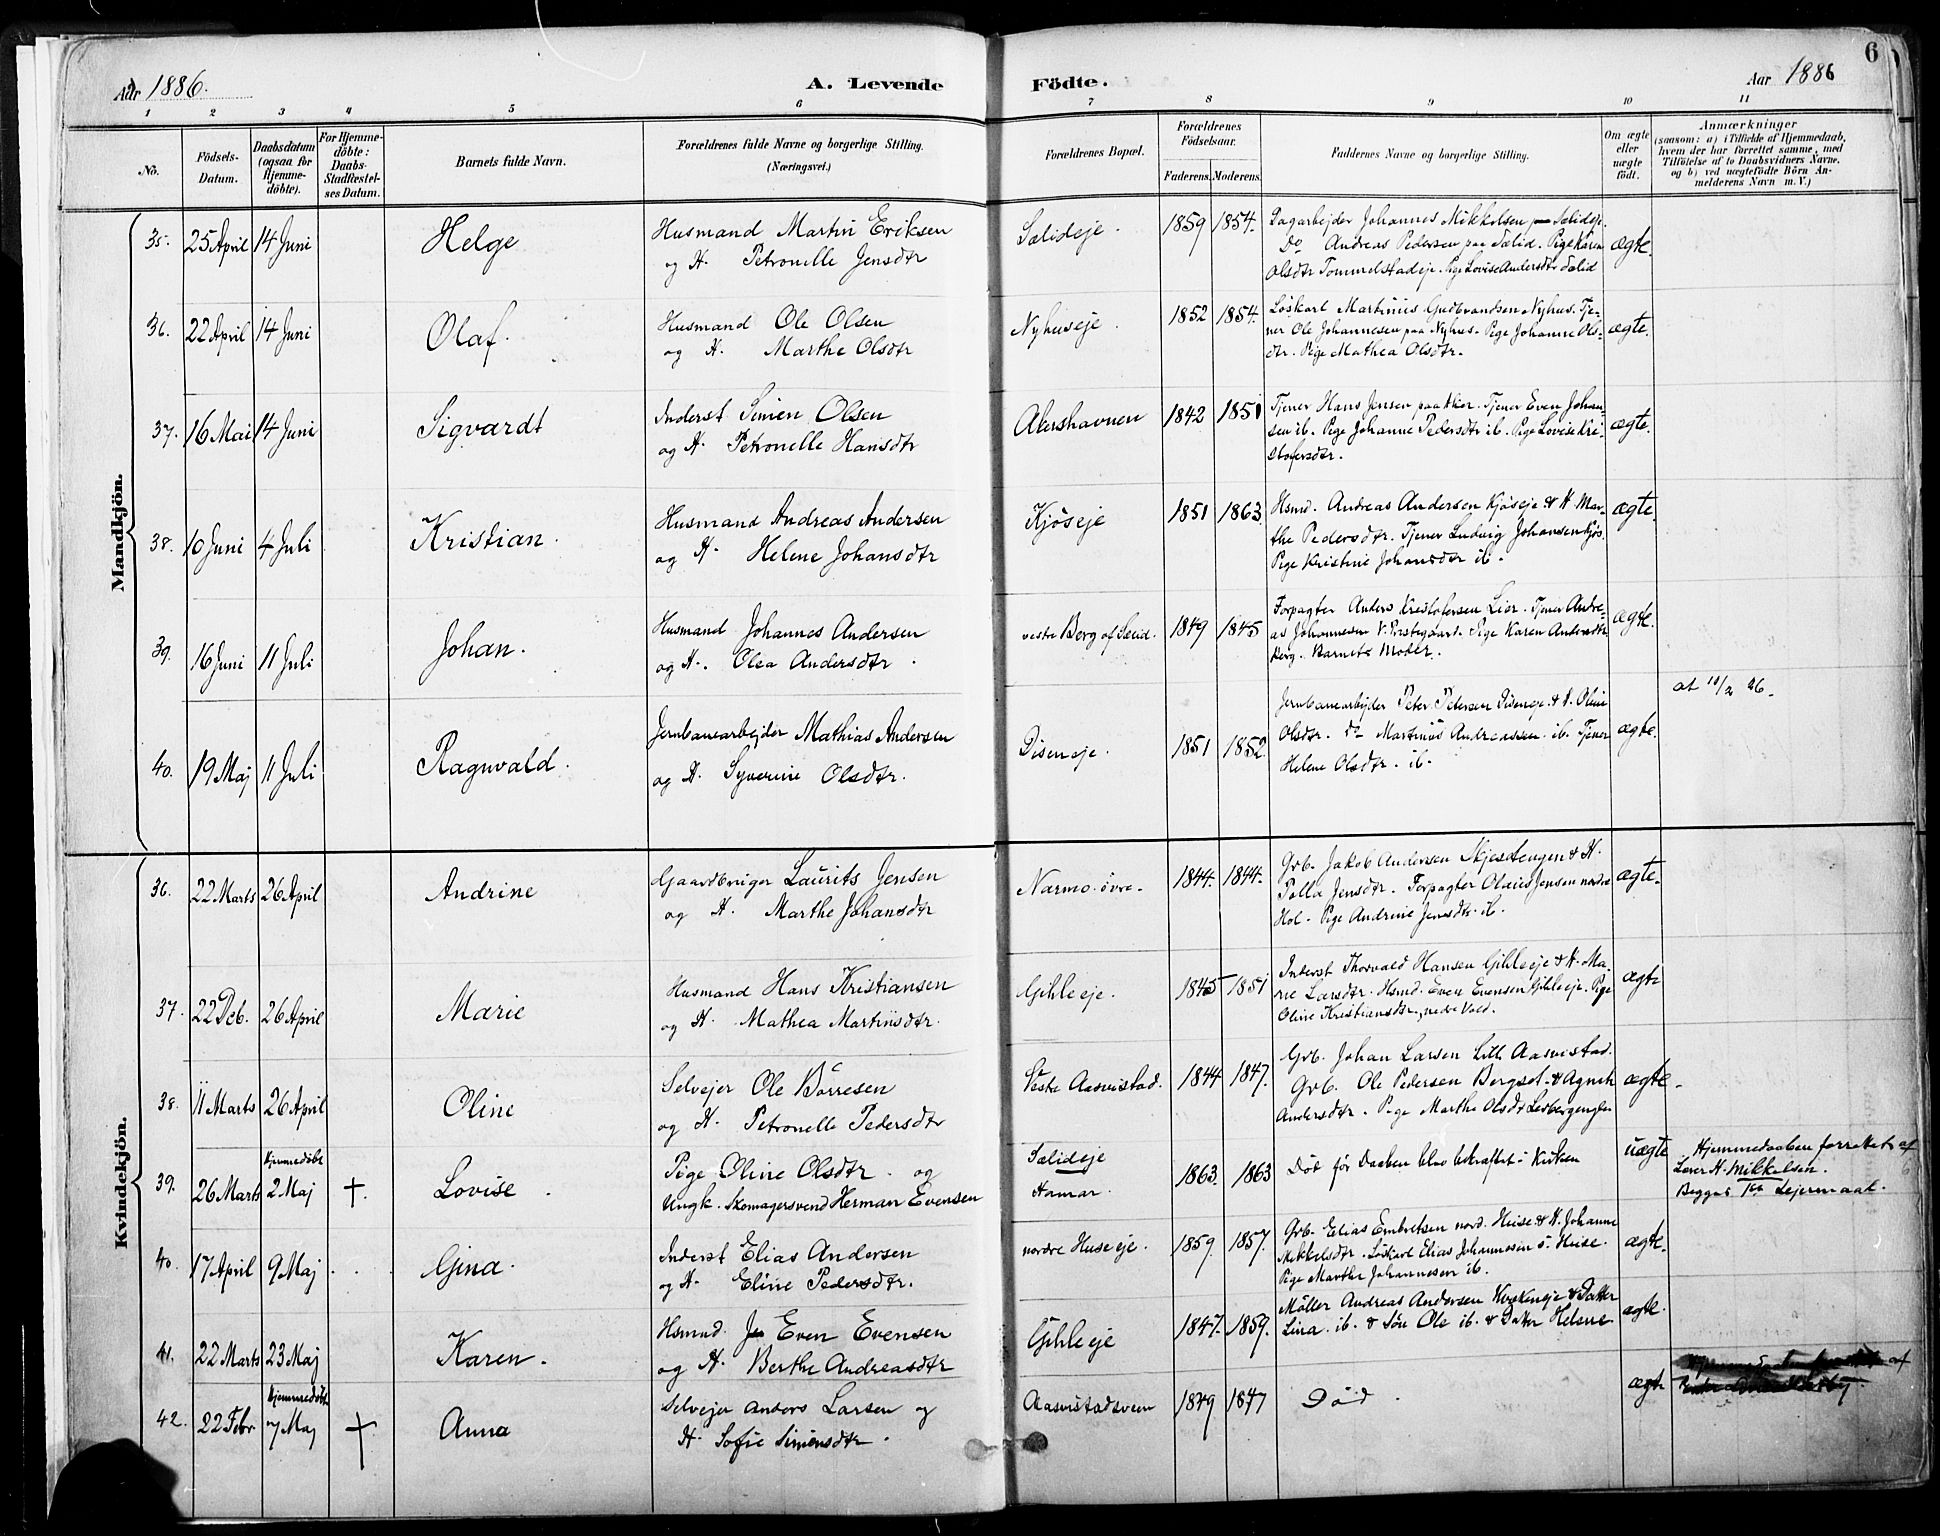 Aar 1886. A. Levende Födte. Aar 1886 6
1 2 3 4 5 6 7 8 9 10 11
No.
Födsels-
Datum.
Daabsdatum
(ogsaa för
Hjemme-
döbte).
For Hjemme-
döbte:
Daabs-
Stadfæstel-
ses Datum.
Barnets fulde Navn.
Forældrenes fulde Navne og borgerlige Stilling.
(Næringsvei.)
Forældrenes Bopæl.
Forældrenes
Födselsaar.
Faderens. Moderens.
Faddernes Navne og borgerlige Stilling.
Om ægte
eller
uægte
födt.
Anmærkninger
(saasom: a) i Tilfælde af Hjemmedaab,
hvem der har forrettet samme, med
Tilföielse af to Daabsvidners Navne,
og b) ved uægtefödte Börn An-
melderens Navn m. V.)
Mandkjön.
35. 25 April 14 Juni Helge
Husmand Martin Eriksen
og H. Petronelle Jensdtr
Sælideje. 1859 1854.
Dagarbejder Johannes Mikkelsen paa Sælideje.
Do Andreas Pedersen paa Sælid. Pige Karen
Olsdtr Tommelstadeje. Pige Lovise Andersdtr Sælid
ægte.
36. 22 April 14 Juni Olaf.
Husmand Ole Olsen
og H. Marthe Olsdtr
Nyhuseje. 1852 1854.
Löskarl Martinus Gudbrandsen Nyhus. Tje-
ner Ole Johannesen paa Nyhus. Pige Johanne Ols-
dtr. Pige Mathea Olsdtr.
ægte.
37. 16 Mai 14 Juni Sigvardt
Inderst Simen Olsen
og H. Petronelle Hansdtr
Akershavnen 1842 1851
Tjener Hans Jensen paa Aker. Tjener Even Johan-
sen ib. Pige Johanne Pedersdtr ib. Pige Lovise Kri-
stofersdtr.
ægte.
38. 10 Juni 4 Juli Kristian.
Husmand Andreas Andersen
og H. Helene Johansdtr
Kjöseje 1851 1863
Hsmd. Andreas Andersen Kjöseje & H Mar-
the Pedersdtr. Tjener Ludvig Johansen Kjös.
Pige Kristine Johansdtr ib.
ægte.
39. 16 Juni 11 Juli Johan.
Husmand Johannes Andersen
og H. Olea Andersdtr.
vestre Berg af Sælid. 1849 1845
Forpagter Anders Kristofersen Lier. Tjener Andre-
as Johannesen V. Prestegaard. Pige Karen Andersdtr
Berg. Barnets Moder.
ægte.
40. 19 Maj 11 Juli Ragnvald.
Jernbanearbejder Mathias Andersen
og H. Syverine Olsdtr.
Diseneje. 1851 1852.
Jernbanearbejder Peter Petersen Diseneje. & H. Oline
Olsdtr. Do Martinus Andreassen. ib. Tjener
Helene Olsdtr. ib.
ægte.
at 18/2 26.
Kvindekjön.
36. 22 Marts 26 April Andrine
Gaardbruger Laurits Jensen
og H. Marthe Johansdtr
Narmo. övre. 1844. 1844.
Grb. Jakob Andersen Skjesetengen & H.
Polla Jensdtr. Forpagter Olaus Jensen nordre
Hol. Pige Andrine Jensdtr. ib.
ægte.
37. 22 Dcb. 26 April Marie
Husmand Hans Kristiansen
og H. Mathea Martinsdtr.
Gihleeje. 1845 1851
Inderst Thorvald Hansen Gihleeje & H. Ma-
rie Larsdtr. Hsmd. Even Evensen Gihleeje. Pige
Oline Kristiansdtr, nedre Vold.
ægte
38. 11 Marts 26 April Oline
Selvejer Ole Börresen
og H. Petronelle Pedersdtr
Vestre Aasvistad. 1844 1847.
Grb. Johan Larsen Lille Aasvistad.
Grb. Ole Pedersen Bergset & Agneth
Andersdtr. Pige Marthe Olsdtr
ægte.
39. 26 Marts Hjemmedöbt 2 Maj †. Lovise.
Pige Oline Olsdtr. og
Ungk. Skomagersvend Herman Evensen
Sælideje
Hamar. 1863. 1863
Död för Daaben blev bekræftet i Kirken
uægte
Hjemmedaaben forrettet af
Lærer H. Mikkelsen.
Begges 1ste Lejermaal.
40. 17 April 9 Maj Gina.
Inderst Elias Andersen
og H. Eline Pedersdtr.
nordre Huseeje. 1859. 1857.
Grb. Elias Embretsen nord. Huse & H. Johanne
Mikkelsdtr. Löskarl Elias Johannesen ö. Huse.
Pige Marthe Johannesen ib.
ægte.
41. 22 Marts 23 Maj Karen.
Hsmnd. Even Evensen
og H. Berthe Andreasdtr
Gihleeje 1847. 1859.
Möller Andreas Andersen Kværkeneje & Datter
Lina. ib. & Sön Ole ib. & Datter Helene
ægte.
42. 22 Febr Hjemmedöbt 7 Maj † Anna
Selvejer Anders Larsen og
H. Sofie Simensdtr.
Aasvistadsveen 1849 1847
Död.
ægte
af